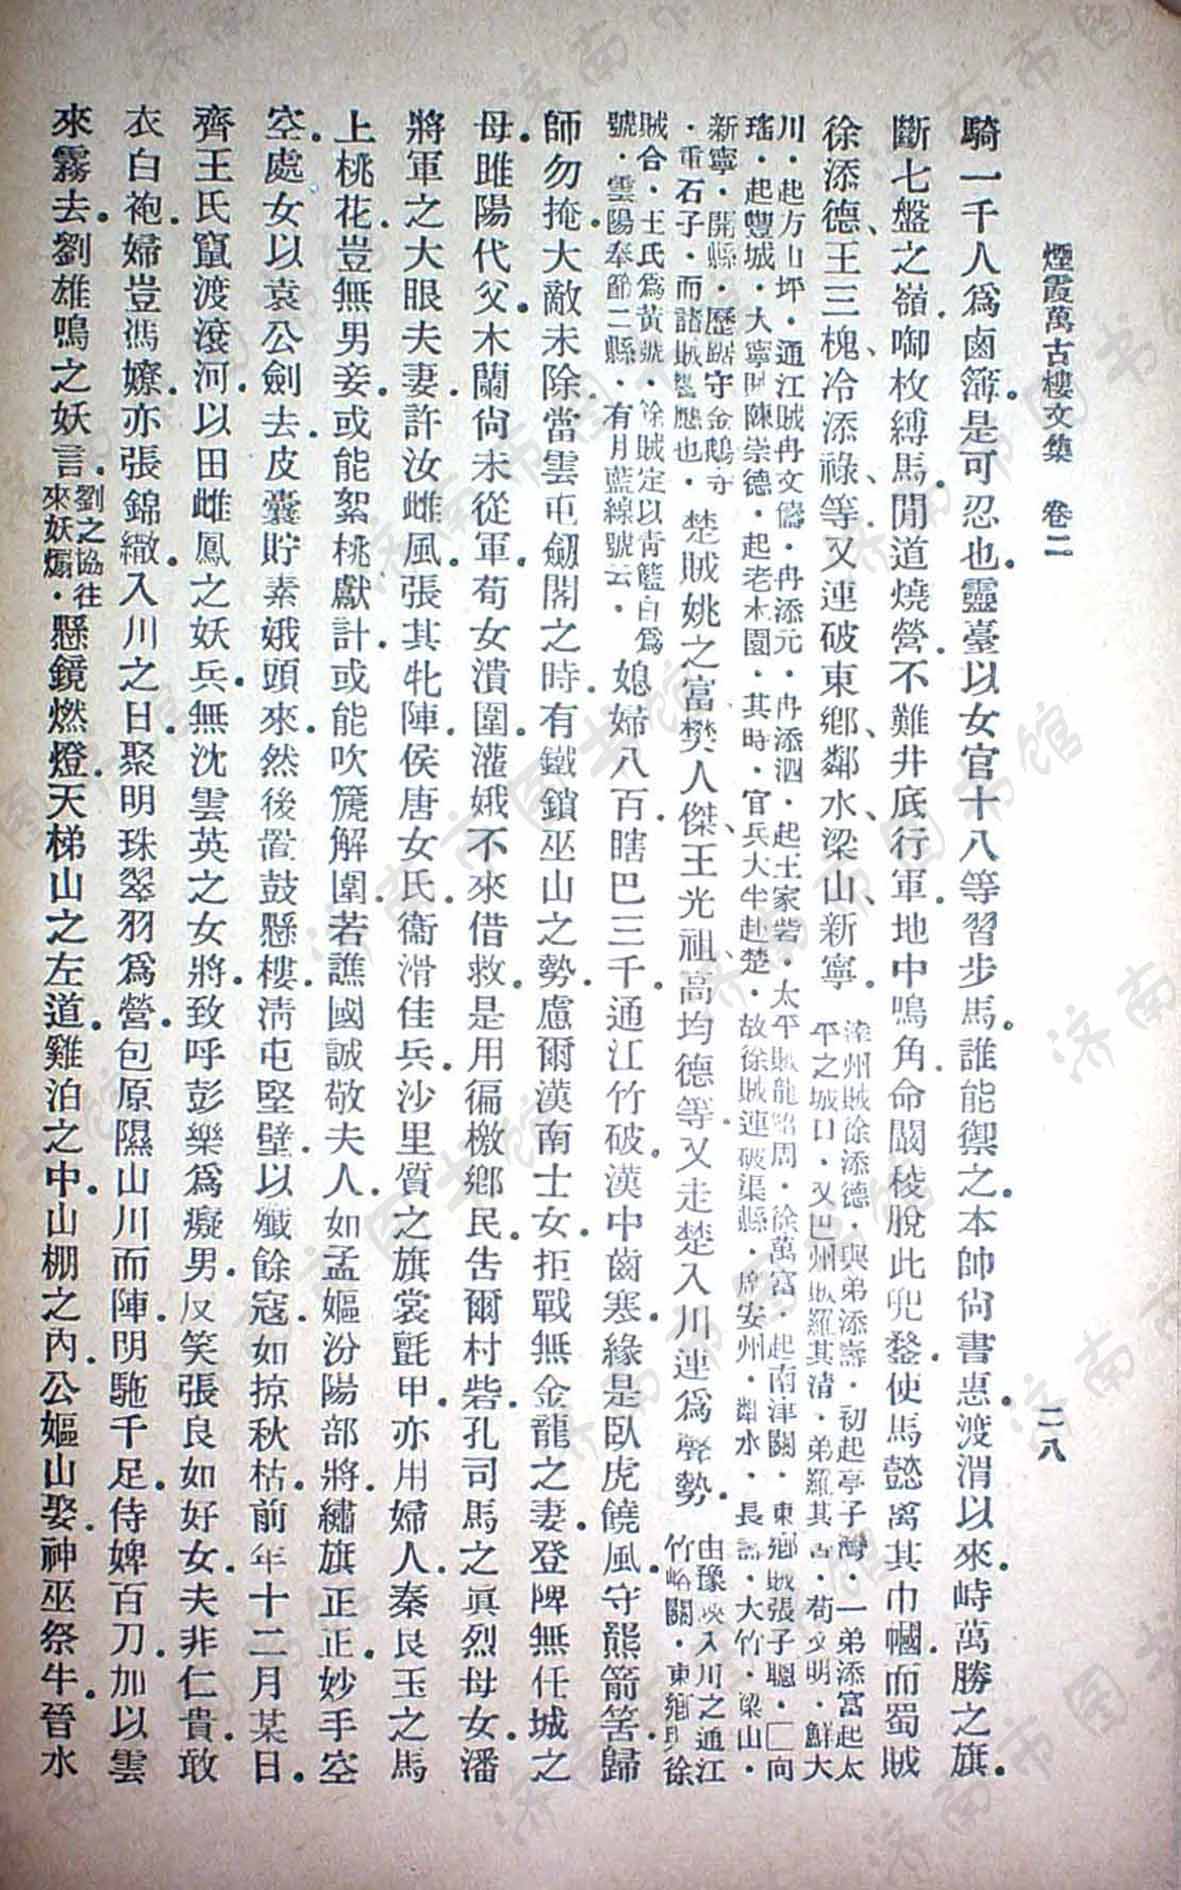 煙霞萬古樓文集　卷二　二八
騎一千人爲鹵簿。是可忍也。靈臺以女官十八等習步馬。誰能禦之。本帥尙書惠渡渭以來。峙萬勝之旗。
斷七盤之嶺。啣枚縛馬。閒道燒營。不難井底行軍。地中鳴角。命闞稜脫此兜鍪。使馬懿寓其巾幗。而蜀賊
徐添德、王三槐、冷添祿等。又連破東鄉、鄰水、梁山、新寧。
達州賊徐添德．與弟添壽．初起亭子灣．一弟添富起太
平之城口．又巴州賊羅其清．弟羅其書．苟文明．鮮大
川．起方山坪．通江賊冉文儔．冉添元．冉添泗．起王家砦．太平賊龍紹周．徐萬富．起南津關．東鄉賊張子聰．
瑤．起豐城．大寧賊陳崇德．起老木園．其時．官兵大半赴楚．故徐賊連破渠縣．安州．鄰水．長壽．大竹．梁山．
新寧．開縣．歷踞守金鵝寺
．重石子．而諸賊響應也．
楚賊姚之富、樊人傑、王光祖、高均德等。又走楚入川。連爲聲勢。
由豫陝入川之通江
竹峪關．東鄉與徐
賊合．王氏爲黃號．餘賊定以靑藍白爲
號．雲陽奉節二縣．有月藍線號云．
媳婦八百。瞎巴三千。通江竹破。漢中齒寒。緣是臥虎饒風。守熊箭筈。歸
師勿掩。大敵未除。當雲屯劒閣之時。有鐵鎖巫山之勢。慮爾漢南士女。拒戰無金龍之妻。登陴無任城之
母。睢陽代父。木蘭尙未從軍。荀女潰圍。灌娥不來借救。是用徧檄鄉民。吿爾村砦。孔司馬之眞烈母女。潘
將軍之大眼夫妻。許汝雌風。張其牝陣。侯唐女氏。衞滑佳兵。沙里質之旗裳氈甲。亦用婦人。秦良玉之馬
上桃花。豈無男妾。或能絮桃獻計。或能吹篪解圍。若譙國誠敬夫人。如孟嫗汾陽部將。繡旗正正。妙手空
空。處女以袁公劍去。皮囊貯素娥頭來。然後置鼓懸樓。淸屯堅壁。以殲餘寇。如掠秋枯。前年十二月某日。
齊王氏竄渡滾河。以田雌鳳之妖兵。無沈雲英之女將。致呼彭樂爲癡男。反笑張良如好女。夫非仁貴。敢
衣白袍。婦豈馮嫽。亦張錦繖。入川之日。聚明珠翠羽爲營。包原隰山川而陣。明駞千足。侍婢百刀。加以雲
來霧去。劉雄鳴之妖言。
劉之協往
來妖煽．
懸鏡燃燈。天梯山之左道。雞泊之中。山棚之內。公嫗山娶。神巫祭牛。晉水